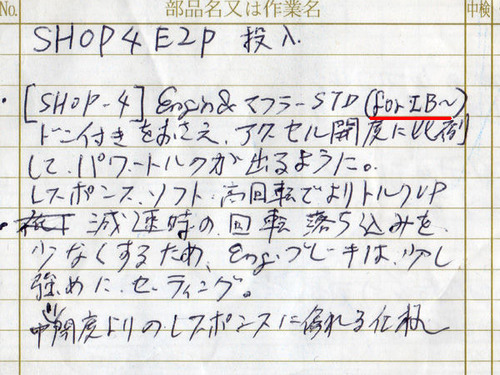 No. 部品名又は作業名 中検
SHOP4 E2P 投入
・[SHOP-4] Engin& マフラーSTD (for IB～)
ドン付きをおさえ、アクセル開度に比例
して、パワートルクが出るように。
レスポンス、ソフト、高回転でよりトルクUP
・減速時の回転落ち込みを
少なくするため、Engブレーキは、少し
強めに、セッティング。
中開度よりのレスポンスに優れる仕様